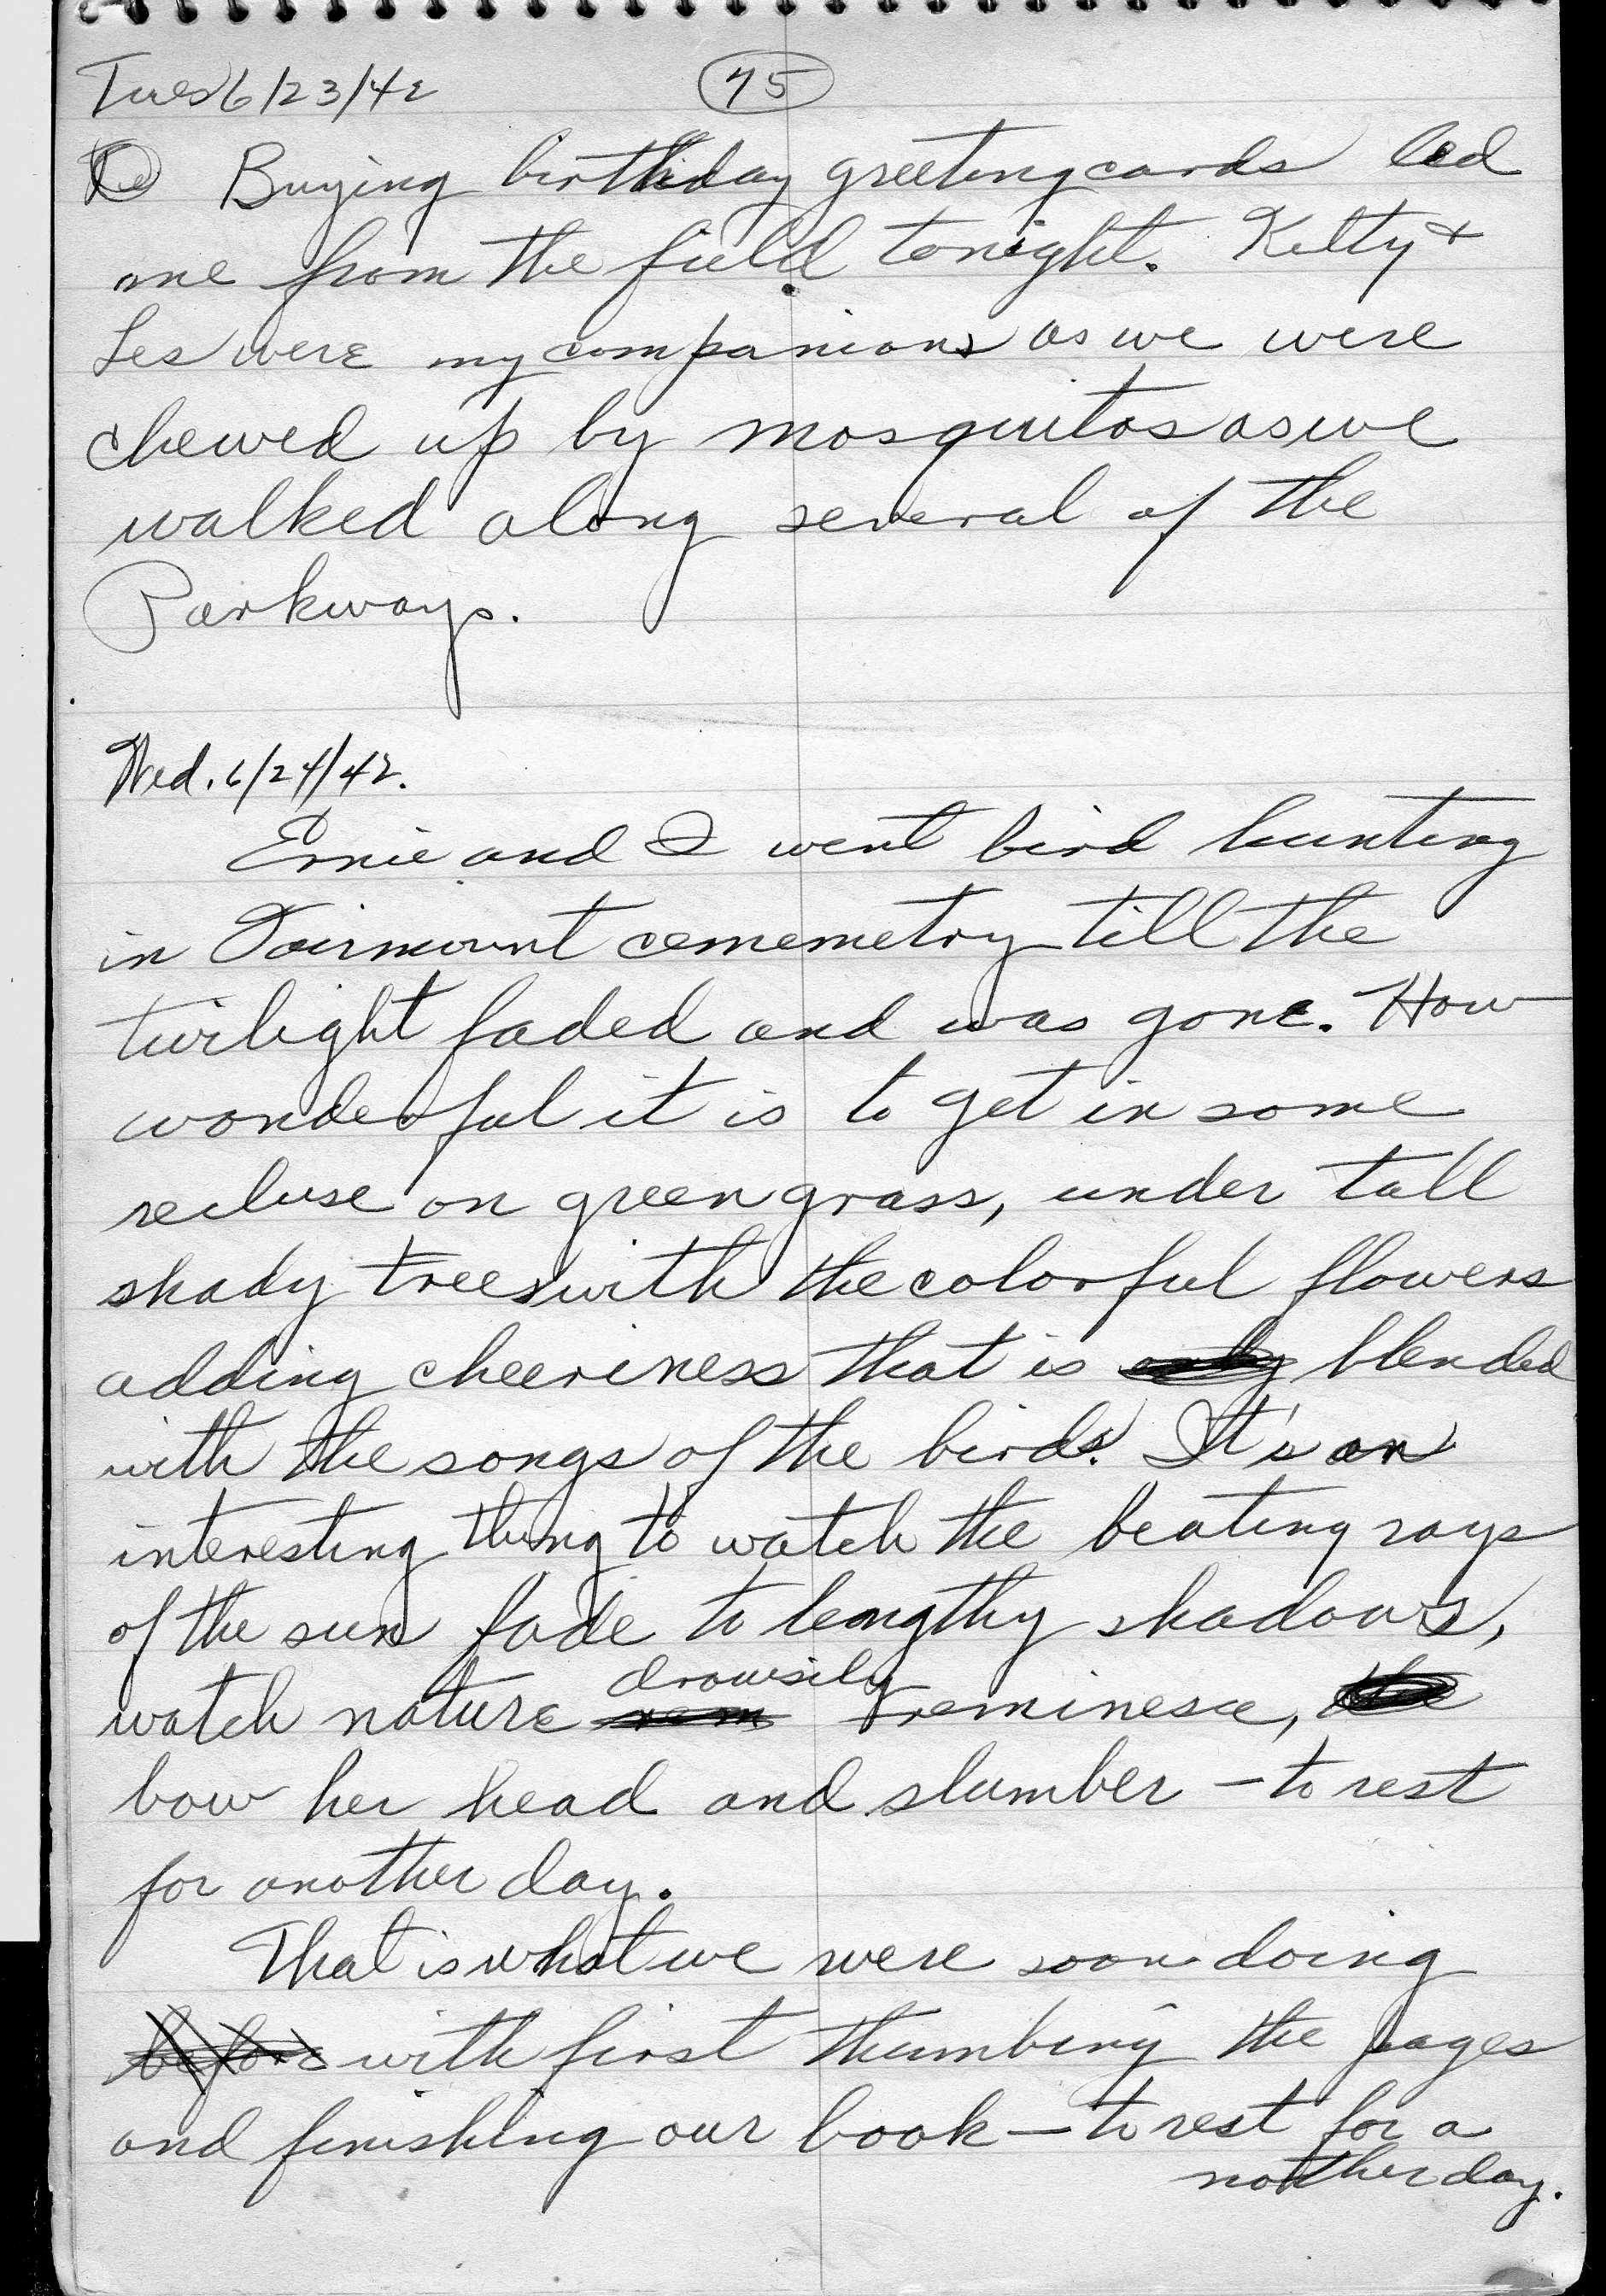 Tues 6/23/42
75
Buying birthday greeting cards led
me from the field tonight. Kitty +
Les were my companions as we were
chewed up by mosquitos as we
walked along several of the
Parkways.
Wed. 6/24/42.
Ernie and I went bird hunting
in Fairmount cememetry till the
twilight faded and was gone. How
wonderful it is to get in some
recluse on green grass, under tall
shady trees with the colorful flowers
adding cheeriness that is only blended
with the songs of the birds. It's an
interesting thing to watch the beating rays
of the sun fade to lengthy shadows,
drowsily
watch nature rem reminesce, the
bow her head and slumber – to rest
for another day.
That is what we were soon doing
before with first thumbing the pages
and finishing our book – to rest for a
nother day.